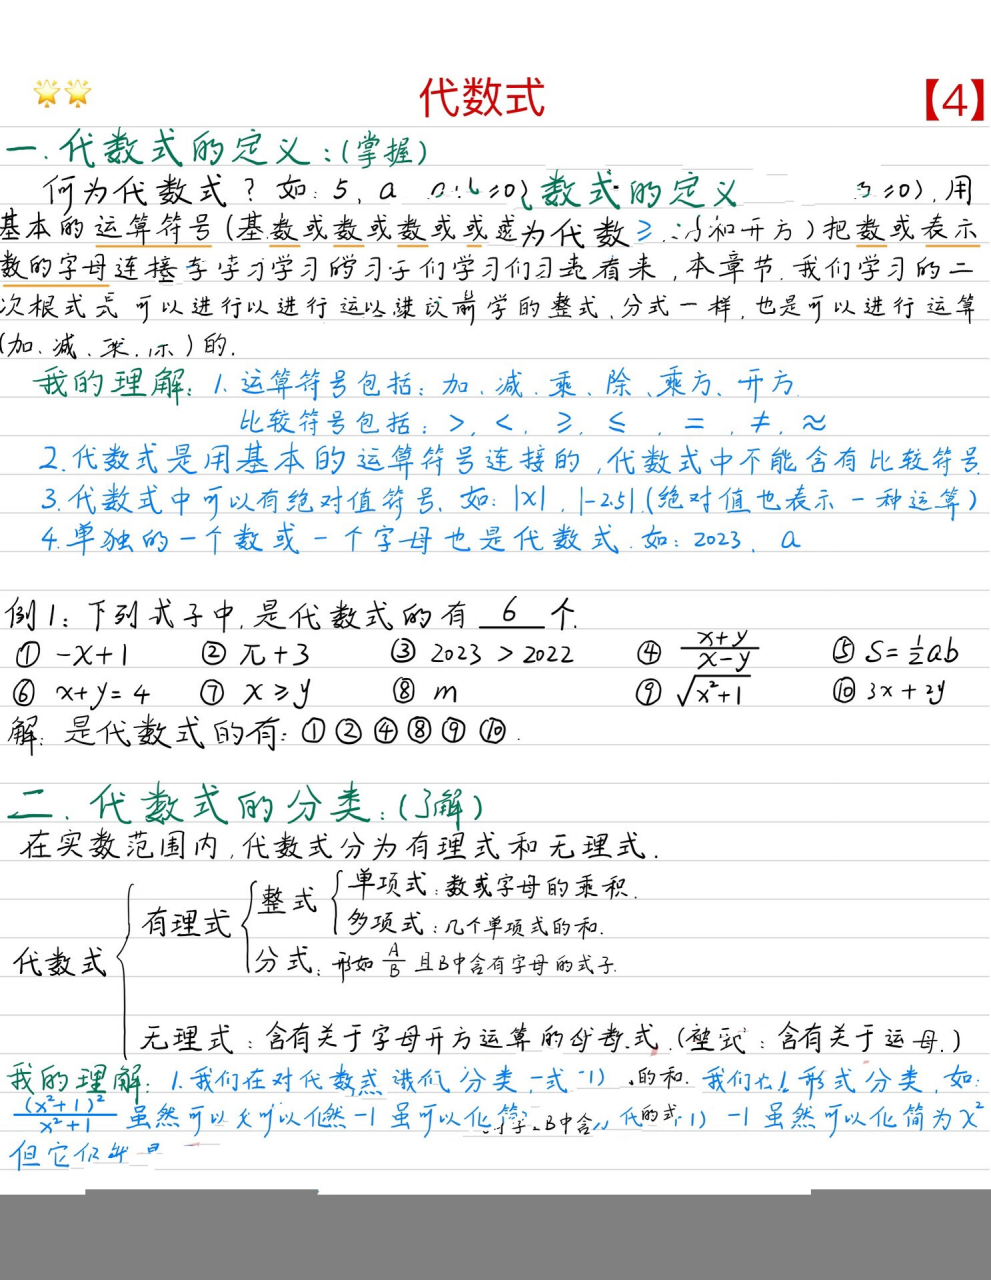 代数式
【4】
一. 代数式的定义:(掌握)
何为代数式? 如: 5、a 数式的定义 ≥0),用
基本的运算符号(基数或数或数或或 为代数 和开方)把数或表示
数的字母连接 学习学习的习 们学习们习 有来,本章节.我们学习的二
次根式 可以进行以进行运以 前学的整式、分式一样,也是可以进行运算
(加、减、 )的.
我的理解: 1. 运算符号包括: 加、减、乘、除、乘方、开方.
比较符号包括: >, <, ≥, ≤, =, ≠, ≈
2.代数式是用基本的运算符号连接的,代数式中不能含有比较符号.
3.代数式中可以有绝对值符号. 如: |x|, |-2.5|.(绝对值也表示一种运算)
4.单独的一个数或一个字母也是代数式.如: 2023、a
例1: 下列式子中,是代数式的有 6 个.
① -x+1 ② π+3 ③ 2023 > 2022 ④ \frac{x+y}{x-y} ⑤ S=\frac{1}{2}ab
⑥ x+y=4 ⑦ x≥y ⑧ m ⑨ \sqrt{x²+1} ⑩ 3x+2y
解: 是代数式的有: ①②④⑧⑨⑩.
二. 代数式的分类:(了解)
在实数范围内,代数式分为有理式和无理式.
代数式
有理式
整式
单项式:数或字母的乘积.
多项式:几个单项式的和.
分式: 形如 \frac{A}{B} 且B中含有字母的式子.
无理式: 含有关于字母开方运算的 式.( : 含有关于运母.)
我的理解: 1.我们在对代数 分类 式-1) 的和. 我们 形式分类,如:
\frac{(x²+1)²}{x²+1} 虽然可以 可以化然-1 虽可以化简 B中含 代的式 1) -1 虽然可以化简为x²
但它仍